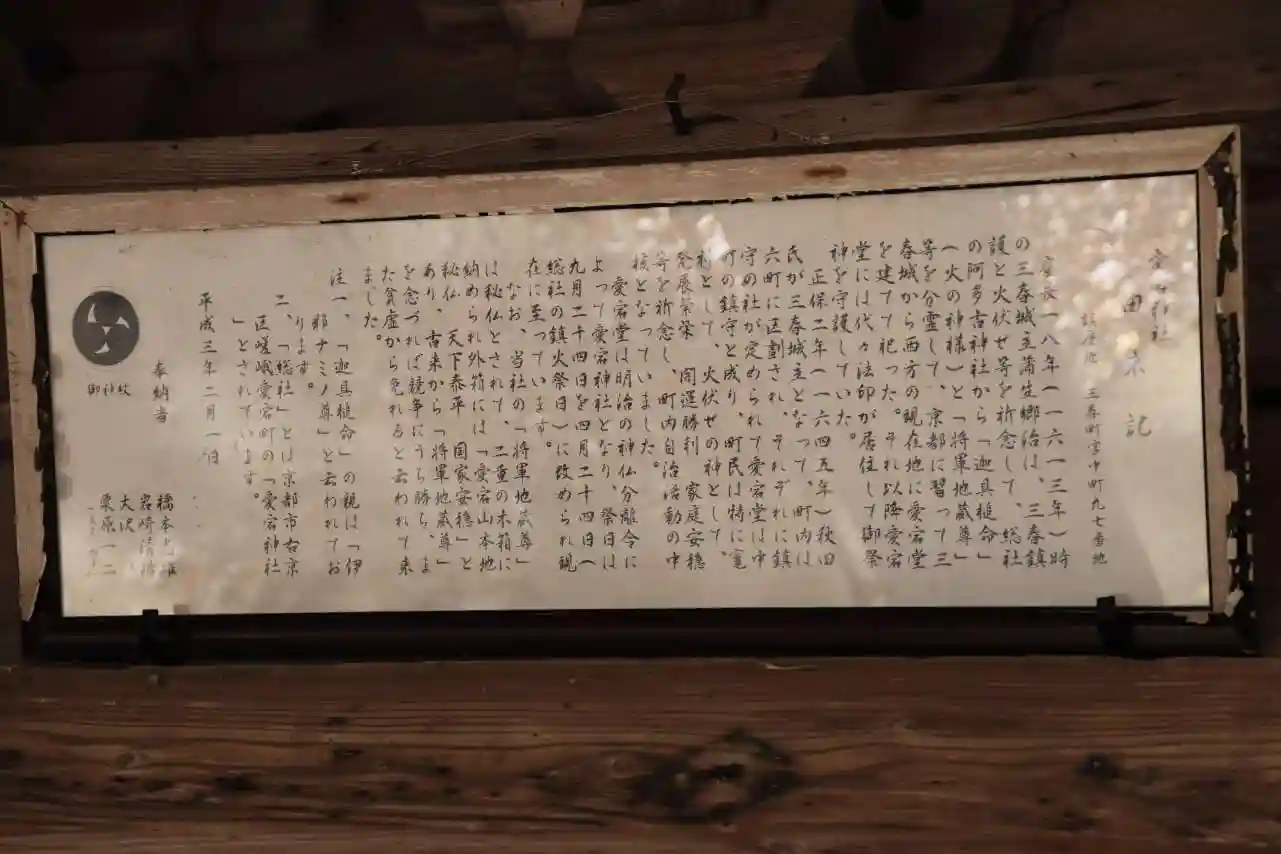 愛宕神社
由来記
鎮座地 三春町字中町九七番地
慶長一八年(一六一三年)時
の三春城主蒲生郷治は、三春鎮
護と火伏せ等を祈念して、総社
の阿多古神社から「迦具槌命」
(火の神様)と「将軍地蔵尊」
等を分霊して、京都に習って三
春城から西方の現在地に愛宕堂
を建てて祀った。それ以降愛宕
堂には代々法印が居住して御祭
神を守護していた。
正保二年(一六四五年)秋田
氏が三春城主となって、町内は
六町に区割され、それぞれに鎮
守の社が定められて愛宕堂は中
町の鎮守と成り、町民は特に竃
神として、火伏せの神として、
発展繁栄 開運勝利 家庭安穏
等を祈念し、町内自治活動の中
核となっていました。
愛宕堂は明治の神仏分離令に
よって愛宕神社となり、祭日は
九月二十四日を四月二十四日(
総社の鎮火祭日)に改められ現
在に至っています。
なお、当社の「将軍地蔵尊」
は秘仏とされて、二重の木箱に
納められ外箱には「愛宕山本地
秘仏 天下泰平 国家安穏」と
あり、古来から「将軍地蔵尊」
を念づれば競争にうち勝ち、ま
た貪虚から免れると云われて来
ました。
注一、「迦具槌命」の親は「伊
邪ナミノ尊」と云われてお
ります。
二、「総社」とは京都市右京
区嵯峨愛宕町の「愛宕神社
」とされています。
平成三年二月一日
奉納者
橋本 雄
岩崎清
大沢
栗原一二
御神紋